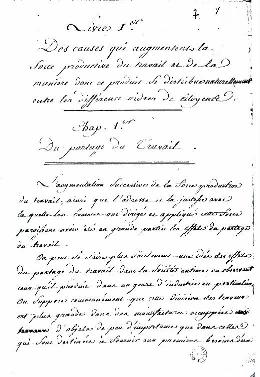 1
Livre 1er
Des causes qui augmentent la
force productive du travail et de la
manière dont ce produit se distribue naturellement
entre les différens ordres de citoyens.
Chap. 1er
Du partage du Travail.
L'augmentation successive de la force productive
du travail, ainsi que l'adresse et la justesse avec
laquelle on l'applique
paroissent avoir été en grande partie les effets du partage
du travail.
On peut se faire plus aisément une idée des effets
du partage du travail dans la Société entiere en observant
ceux qu'il produit dans un genre d'industrie en particulier
On suppose communément que cette division des travaux
est plus grande dans des manufactures occupées
d'objets de peu d'importance que dans celles
qui sont destinées à fournir aux premiers besoins d'un